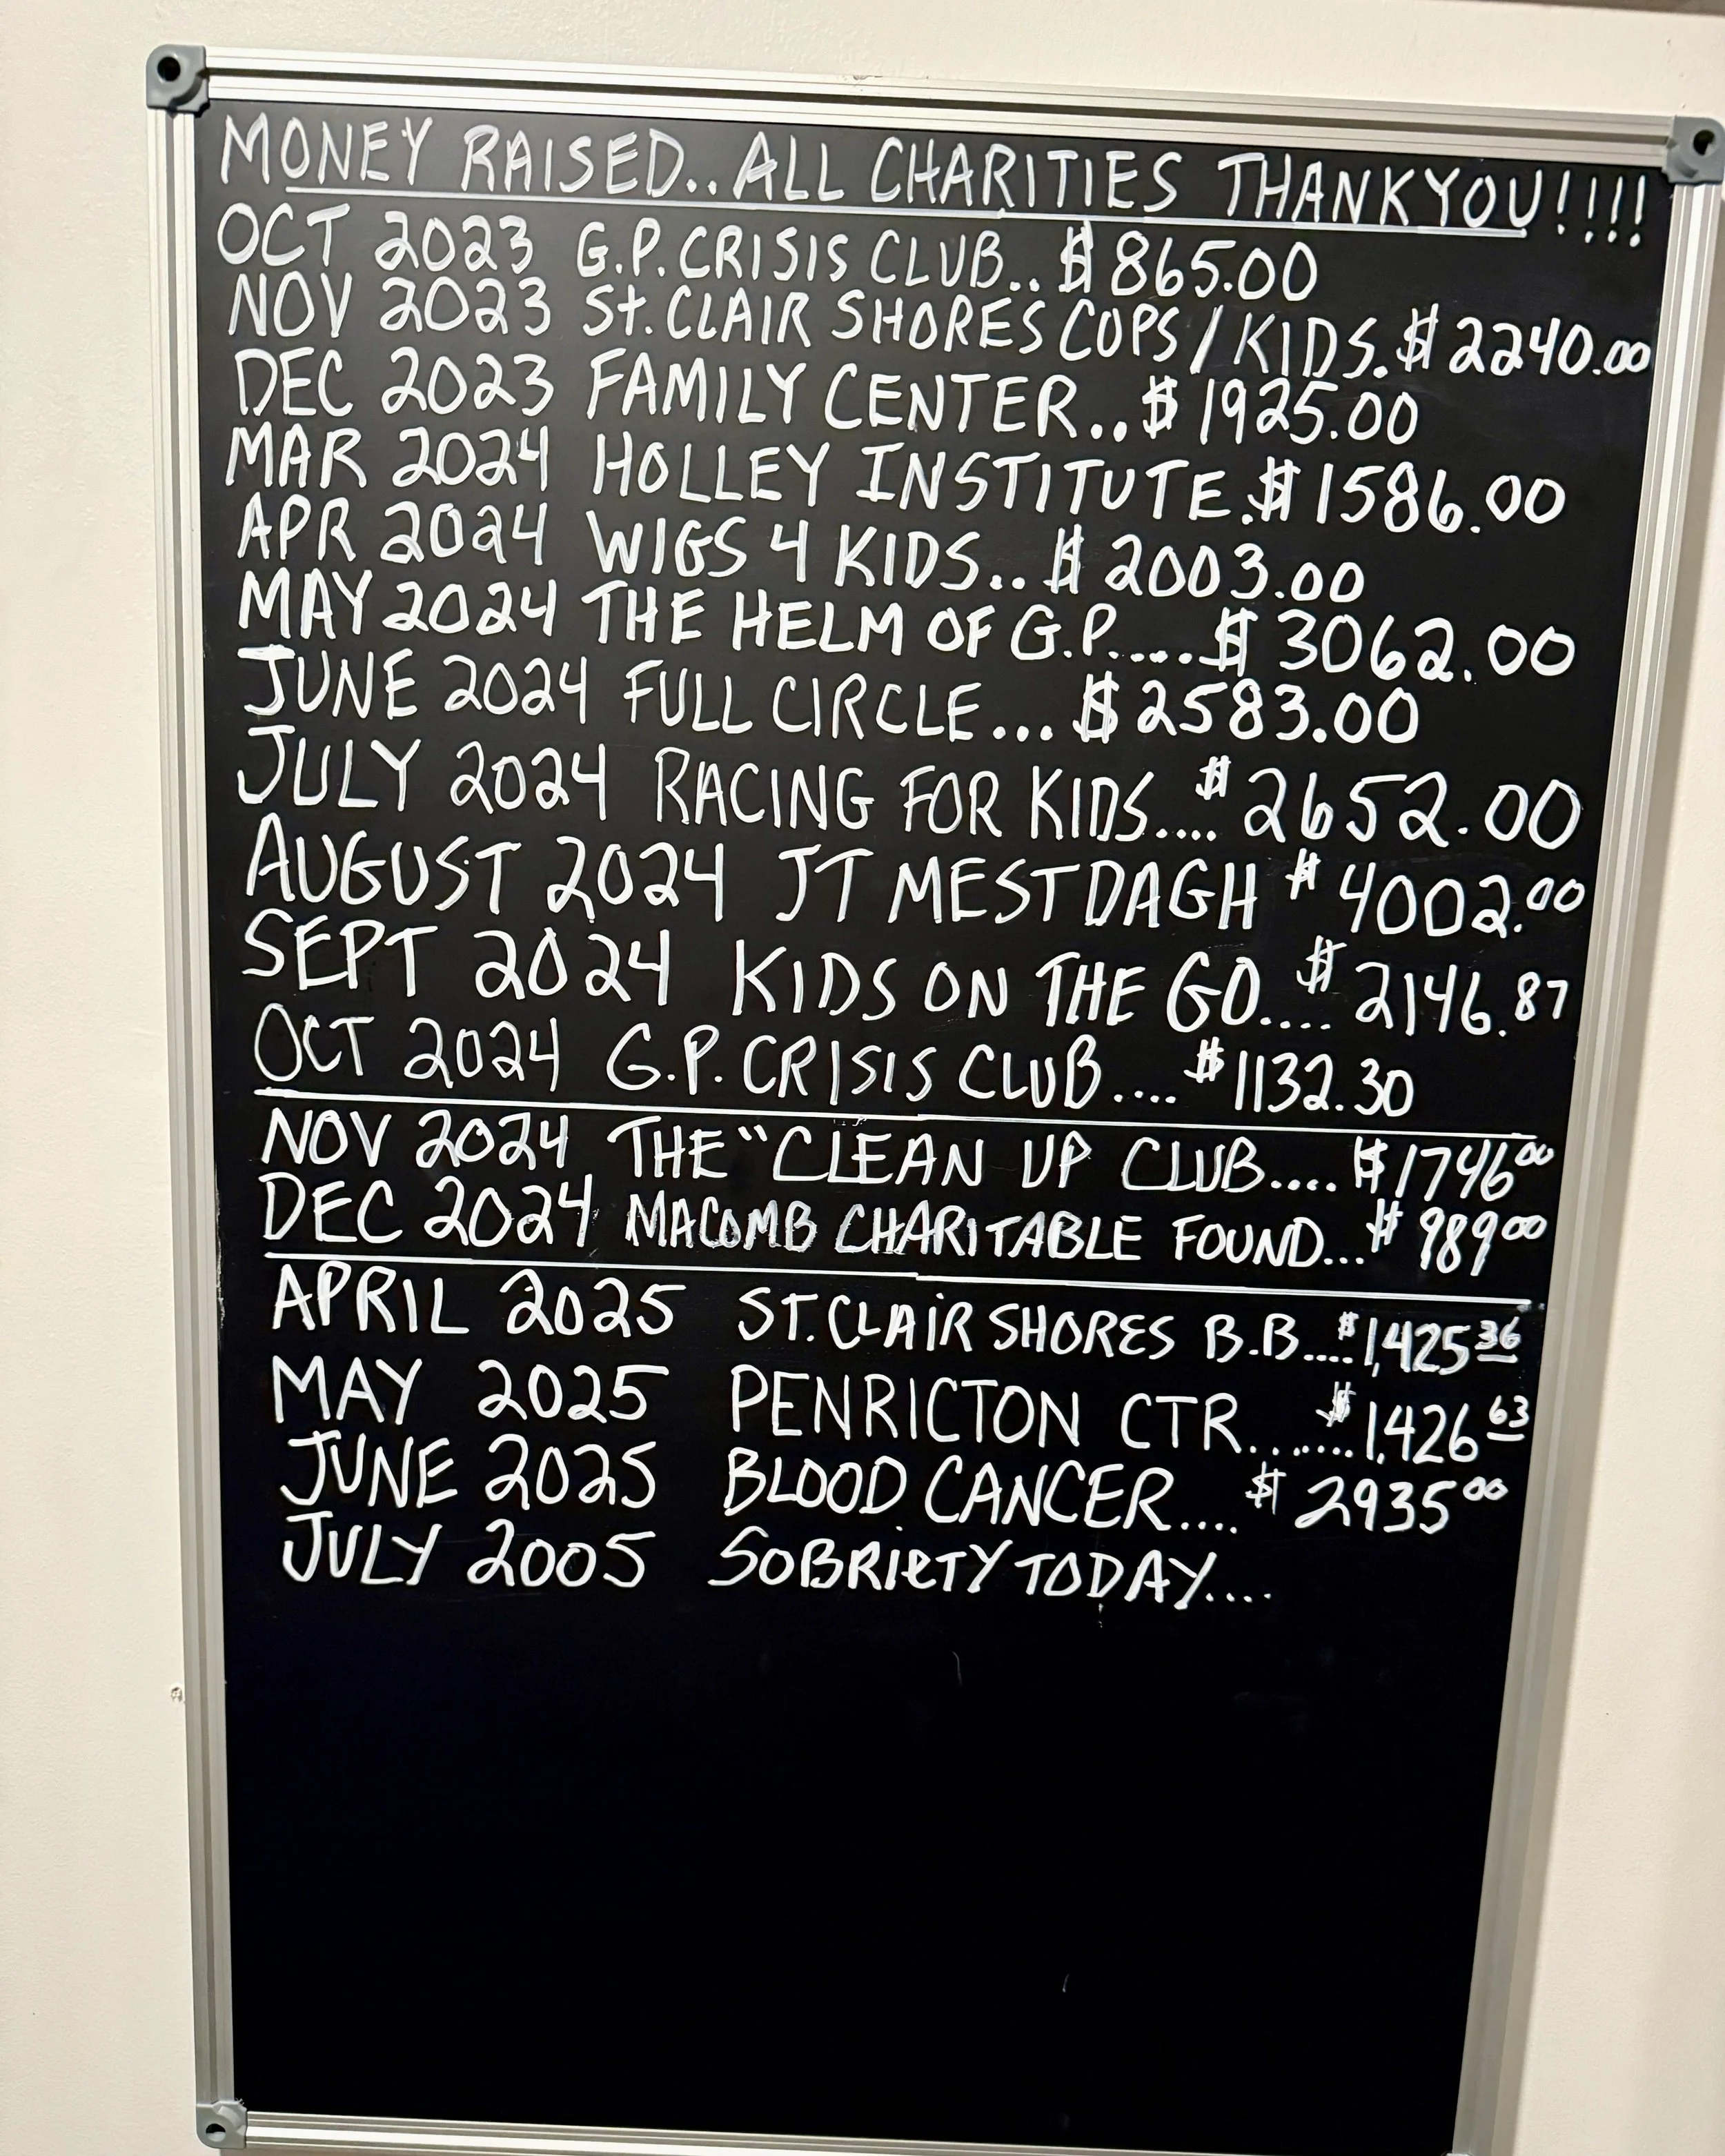 MONEY RAISED.. ALL CHARITIES THANKYOU!!!!
OCT 2023 G.P. CRISIS CLUB.. $865.00
NOV 2023 St. CLAIR SHORES COPS / KIDS. $2240.00
DEC 2023 FAMILY CENTER.. $1925.00
MAR 2024 HOLLEY INSTITUTE. $1586.00
APR 2024 WIGS 4 KIDS.. $2003.00
MAY 2024 THE HELM OF G.P..... $3062.00
JUNE 2024 FULL CIRCLE... $2583.00
JULY 2024 RACING FOR KIDS.... $2652.00
AUGUST 2024 JT MESTDAGH $4002.00
SEPT 2024 KIDS ON THE GO.... $2146.87
OCT 2024 G.P. CRISIS CLUB.... $1132.30
NOV 2024 THE "CLEAN UP CLUB.... $1746 00
DEC 2024 MACOMB CHARITABLE FOUND... $989 00
APRIL 2025 ST. CLAIR SHORES B.B.... $1,425 36
MAY 2025 PENRICTON CTR....... $1,426 63
JUNE 2025 BLOOD CANCER.... $2935 00
JULY 2005 SOBRIETY TODAY....